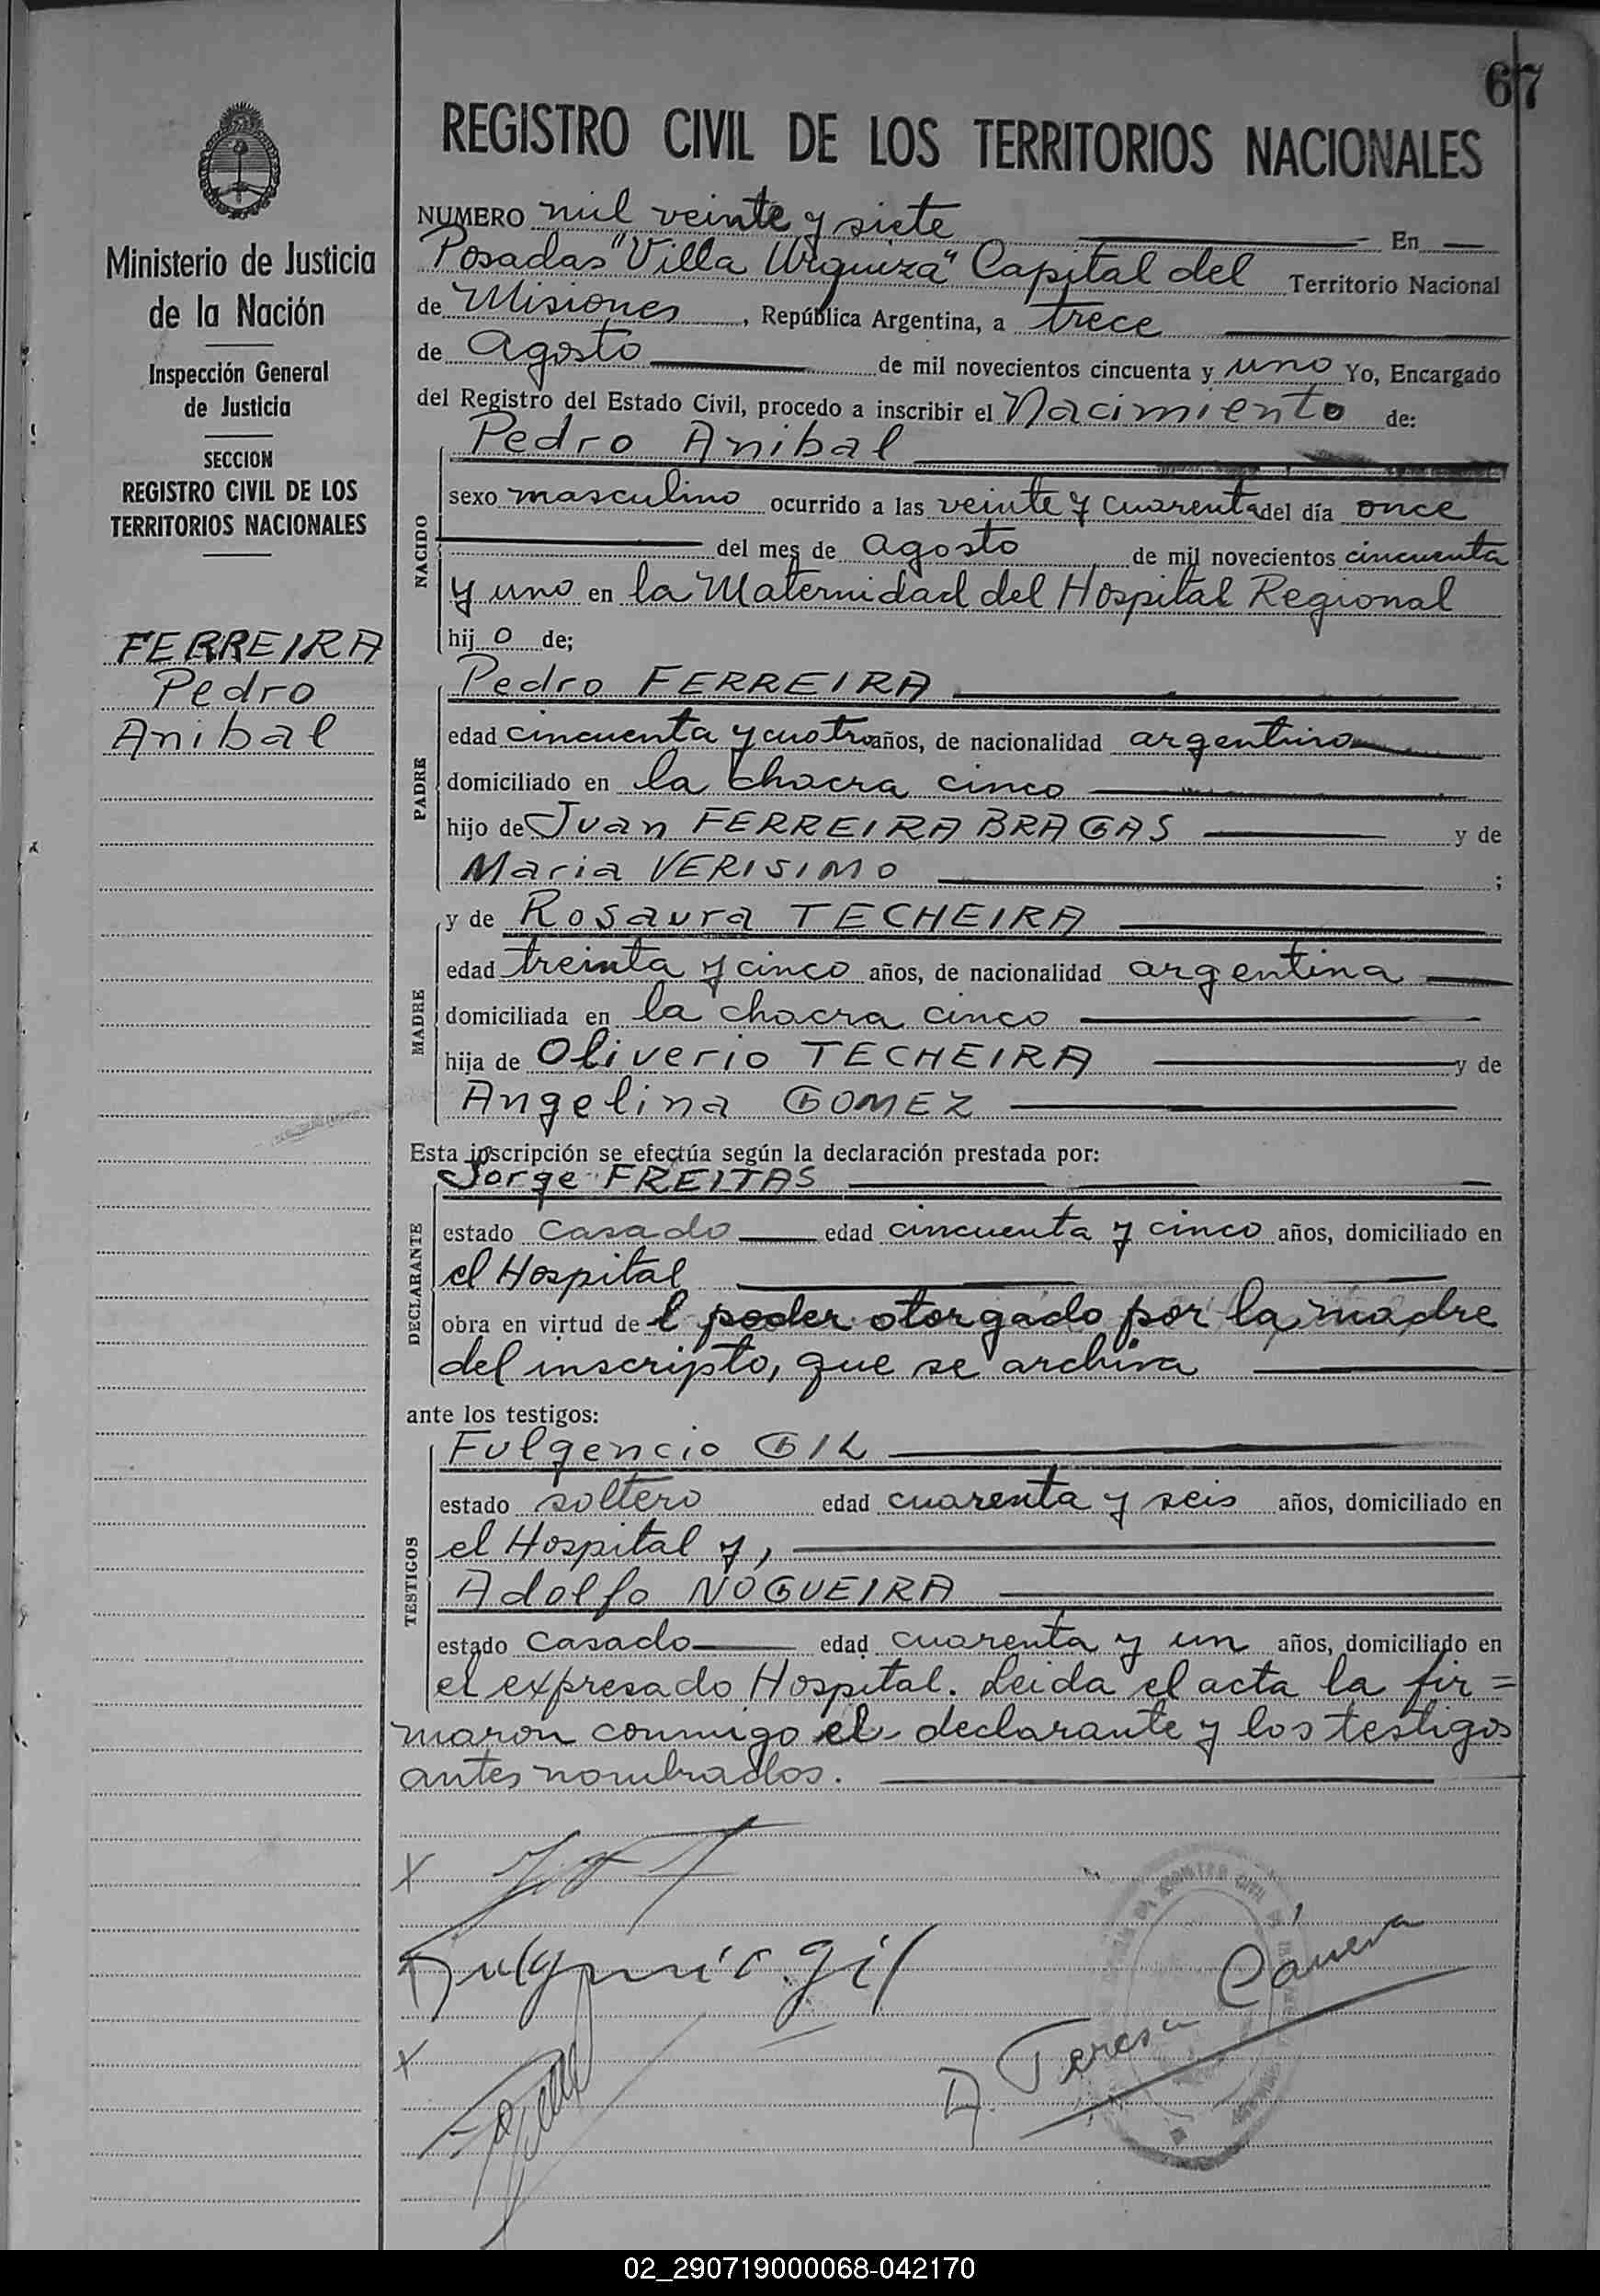 67
REGISTRO CIVIL DE LOS TERRITORIOS NACIONALES
Ministerio de Justicia
de la Nación
Inspección General
de Justicia
SECCION
REGISTRO CIVIL DE LOS
TERRITORIOS NACIONALES
FERREIRA
Pedro
Anibal
NUMERO mil veinte y siete En
Posadas "Villa Urquiza" Capital del Territorio Nacional
de Misiones, República Argentina, a trece
de Agosto de mil novecientos cincuenta y uno Yo, Encargado
del Registro del Estado Civil, procedo a inscribir el Nacimiento de:
Pedro Anibal
NACIDO
sexo masculino ocurrido a las veinte y cuarenta del día once
del mes de Agosto de mil novecientos cincuenta
y uno en la Maternidad del Hospital Regional
hij o de;
PADRE
Pedro FERREIRA
edad cincuenta y cuatro años, de nacionalidad argentino
domiciliado en la chacra cinco
hijo de Juan FERREIRA BRAGAS y de
Maria VERISIMO ;
MADRE
y de Rosaura TECHEIRA
edad treinta y cinco años, de nacionalidad argentina
domiciliada en la chacra cinco
hija de Oliverio TECHEIRA y de
Angelina GOMEZ
Esta inscripción se efectúa según la declaración prestada por:
DECLARANTE
Jorge FREITAS
estado casado edad cincuenta y cinco años, domiciliado en
el Hospital
obra en virtud de l poder otorgado por la madre
del inscripto, que se archiva
ante los testigos:
TESTIGOS
Fulgencio GIL
estado soltero edad cuarenta y seis años, domiciliado en
el Hospital y,
Adolfo NOGUEIRA
estado casado edad cuarenta y un años, domiciliado en
el expresado Hospital. Leida el acta la fir=
maron conmigo el declarante y los testigos
antes nombrados.
Fulgencio Gil
A. Teresa
02_290719000068-042170